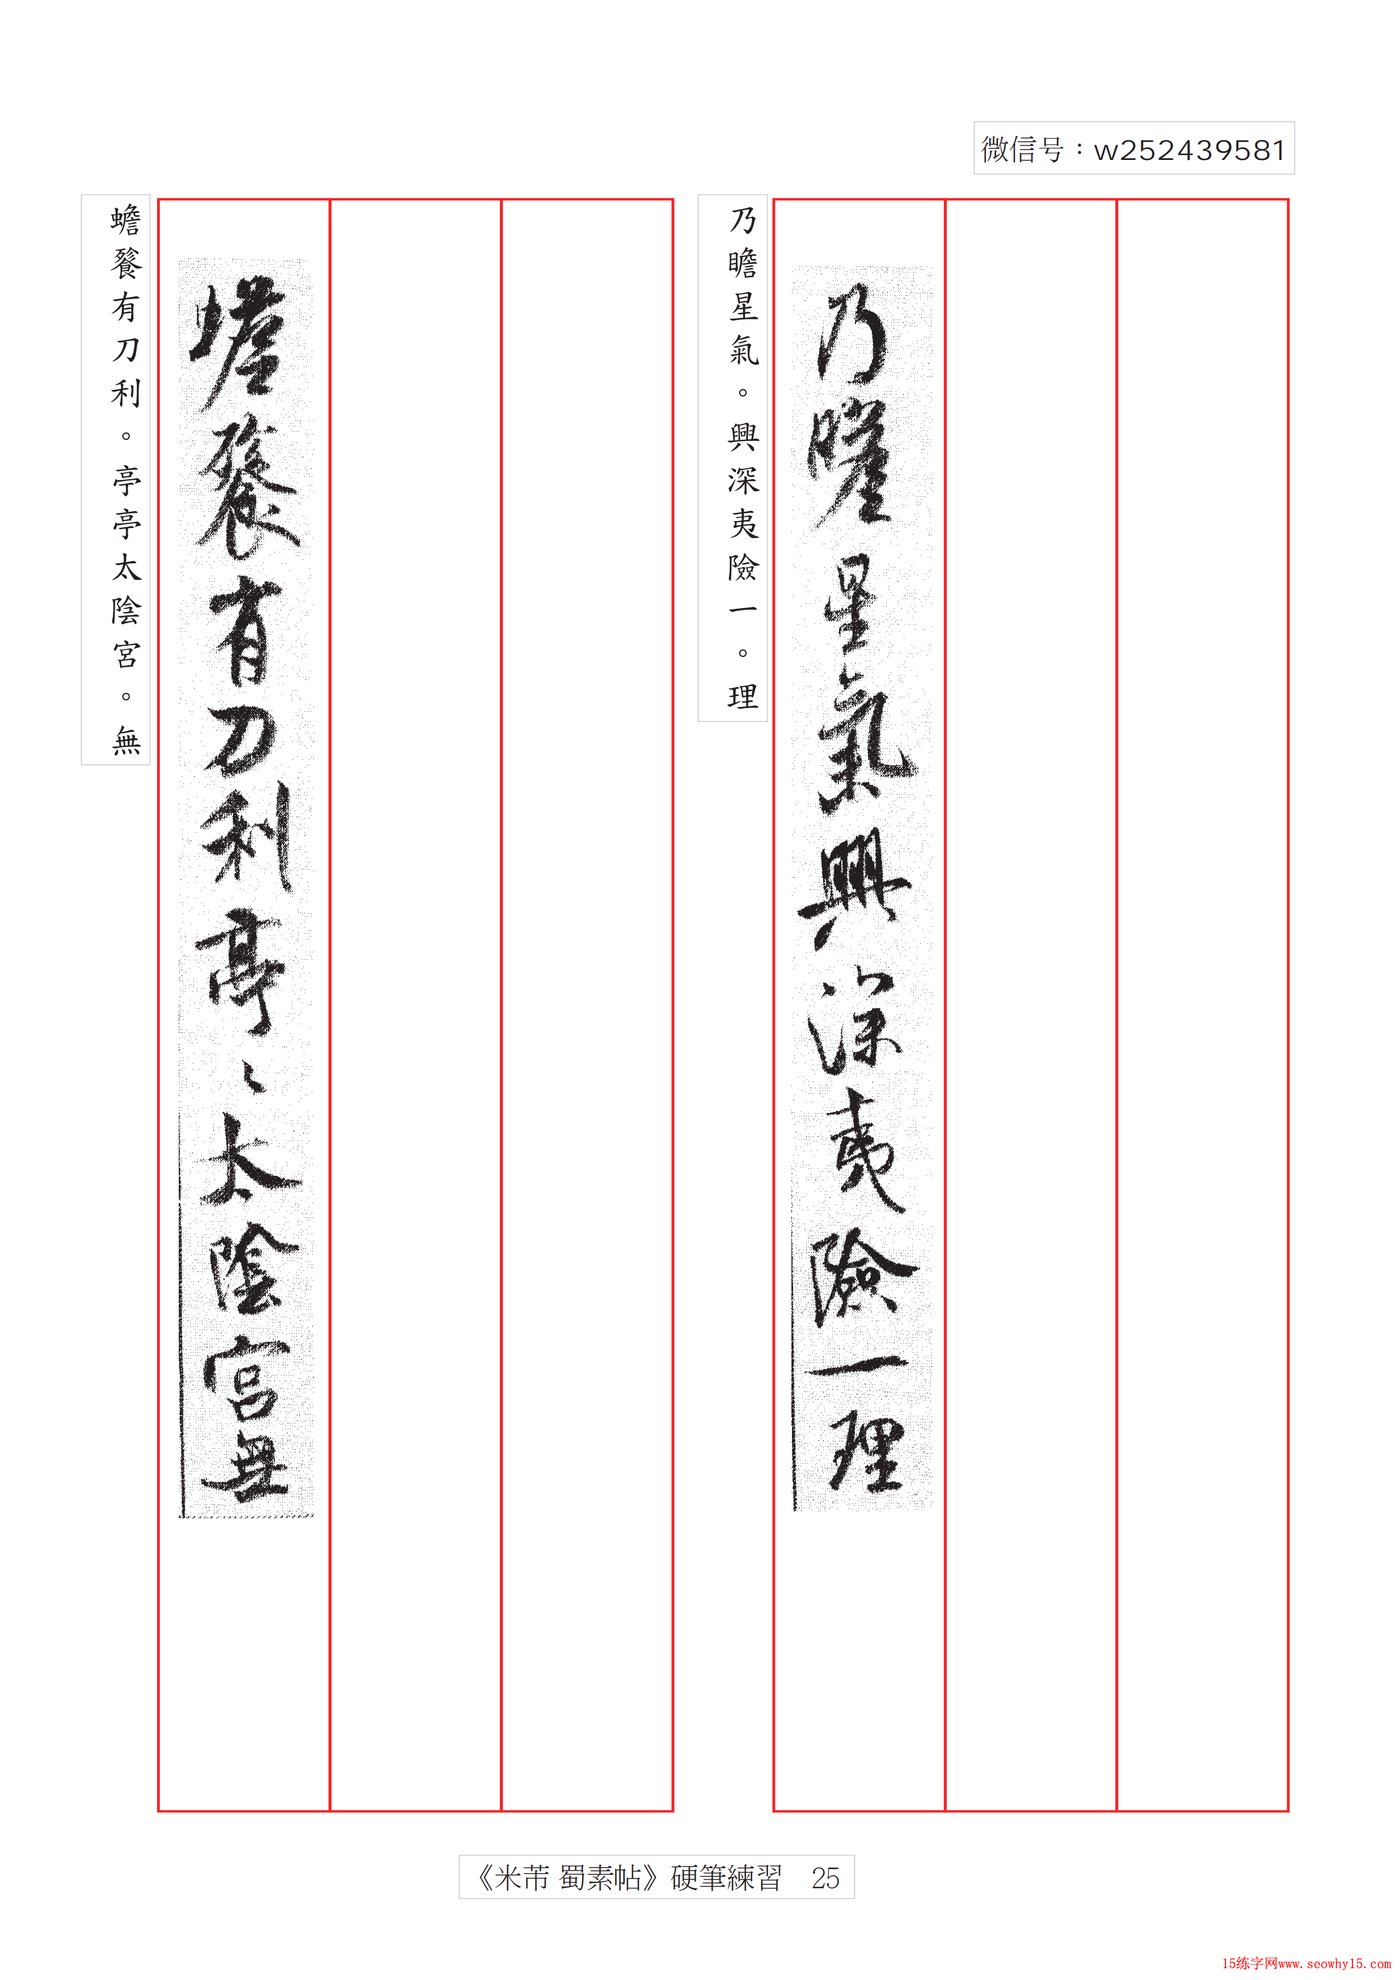 微信号：w252439581
乃瞻星氣興深夷險一理
乃瞻星氣。興深夷險一。理
蟾餮有刀利亭〻太陰宮無
蟾餮有刀利。亭亭太陰宮。無
《米芾 蜀素帖》硬筆練習 25
15练字网www.seowhy15.com